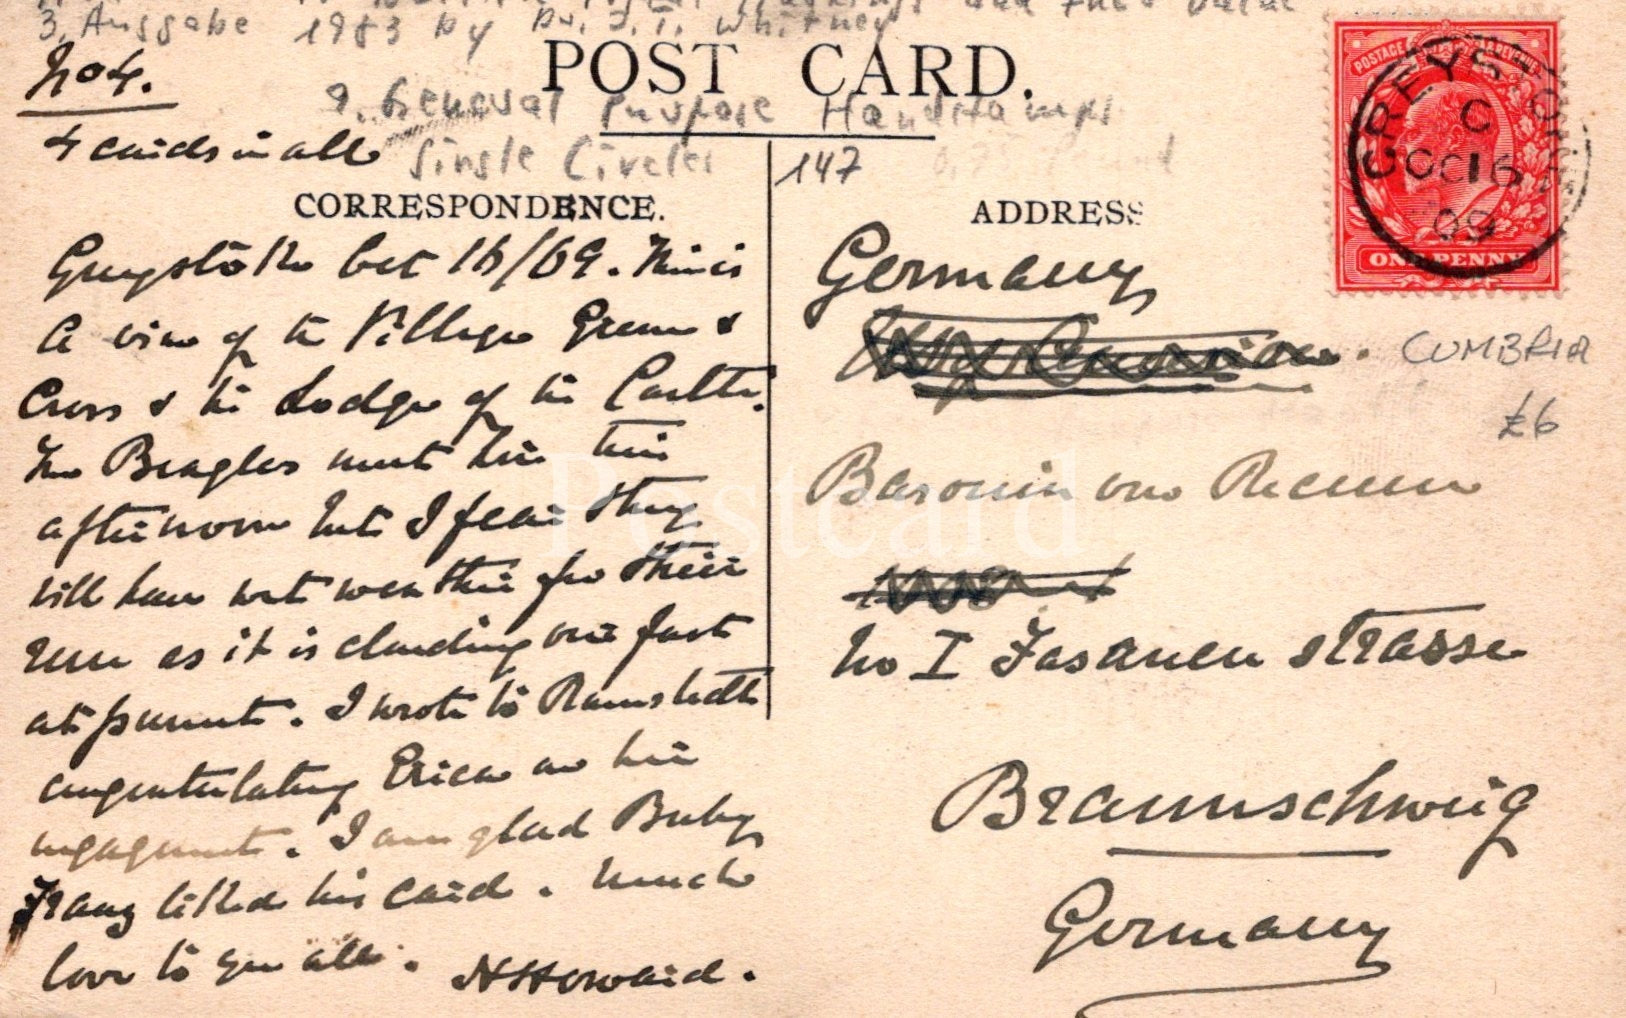 3. Ausgabe 1983 by Dr. J. T. Whitney
No 4.
POST CARD.
9. General Purpose Handstamps
4 cards in all
Single Circles
147
CORRESPONDENCE.
ADDRESS
GREYSTOKE
C
OC 16
09
POSTAGE & REVENUE
ONE PENNY
Greystoke Oct 16/09. This is
a view of the Village Green &
Cross & the Lodge of the Castle.
The Beagles meet here this
afternoon but I fear they
will have wet weather for their
run as it is clouding over fast
at present. I wrote to Ramstedt
congratulating Erica on her
engagement. I am glad Baby
Franz liked his card. Much
love to you all. H Howard.
Germany
CUMBRIA
£6
Baronin von
No I Fasanen strasse
Braunschweig
Germany
Postcard